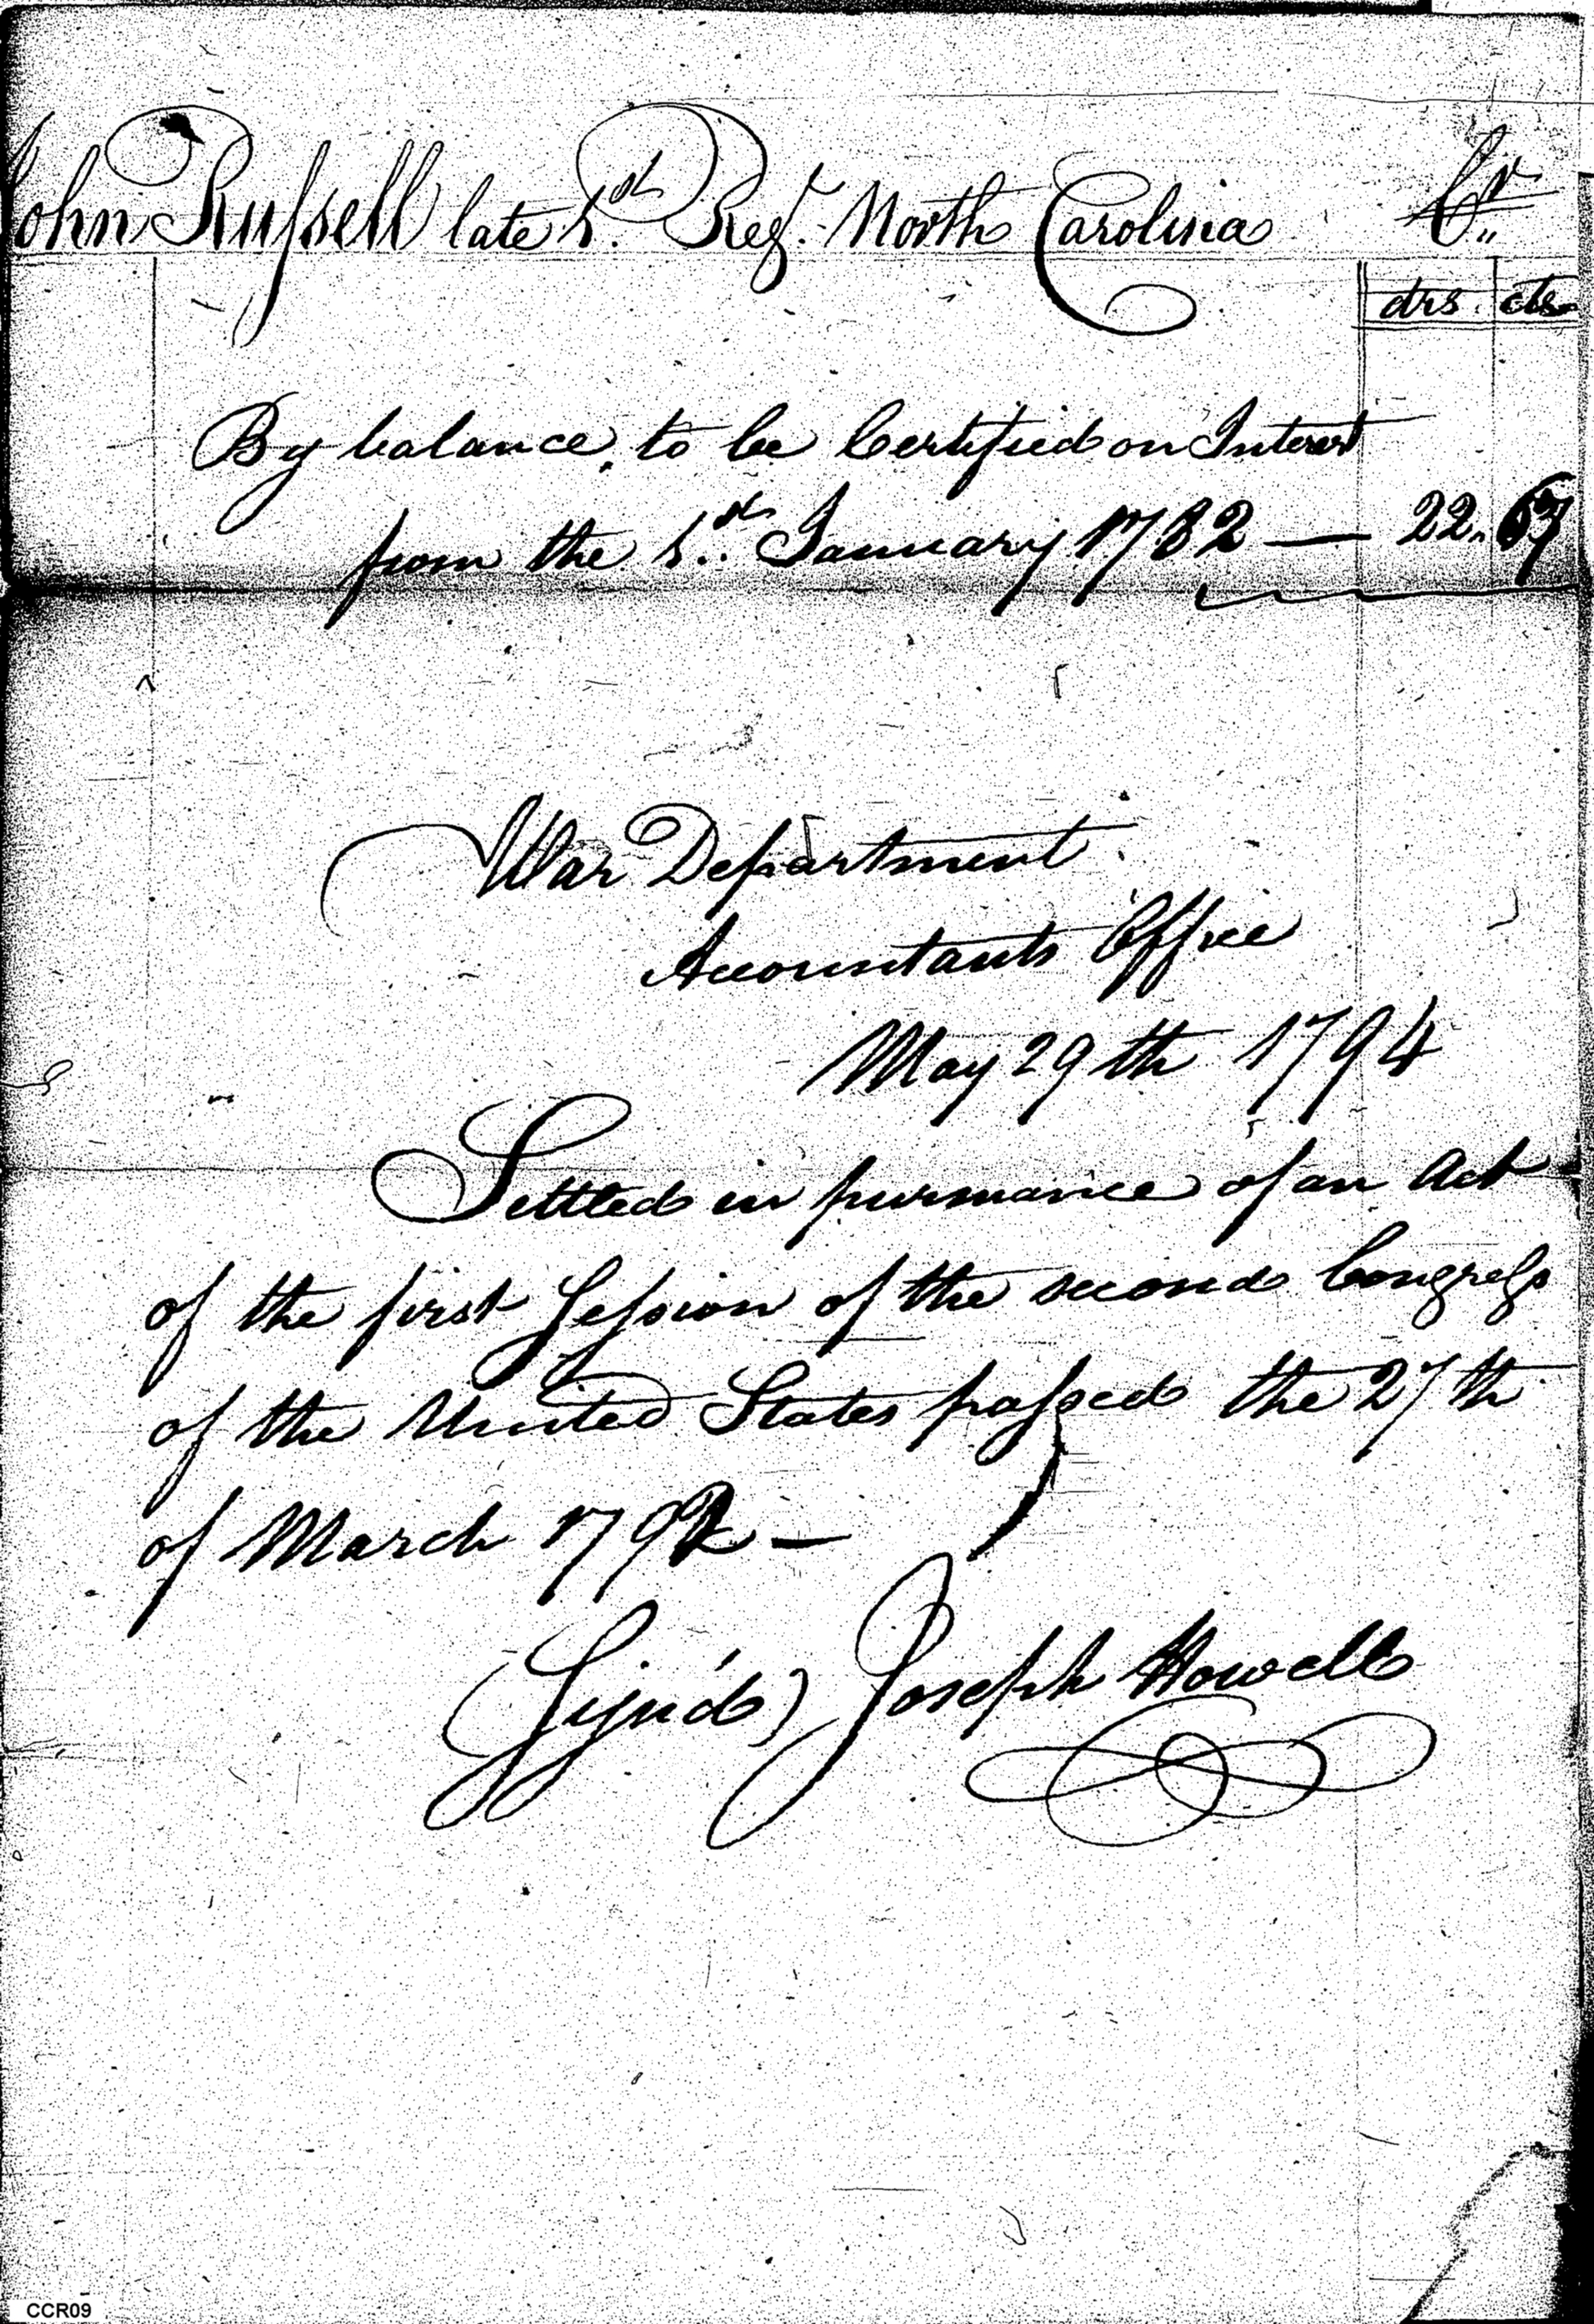 John Russell late 1st. Regt. North Carolina Cr
drs. cts
By balance to be Certified on Interest
from the 1st. January 1782 — 22. 67
War Department
Accountants Office
May 29th 1794
Settled in pursuance of an Act
of the first Session of the second Congress
of the United States passed the 27th
of March 1792 —
(Sign'd) Joseph Howell
CCR09